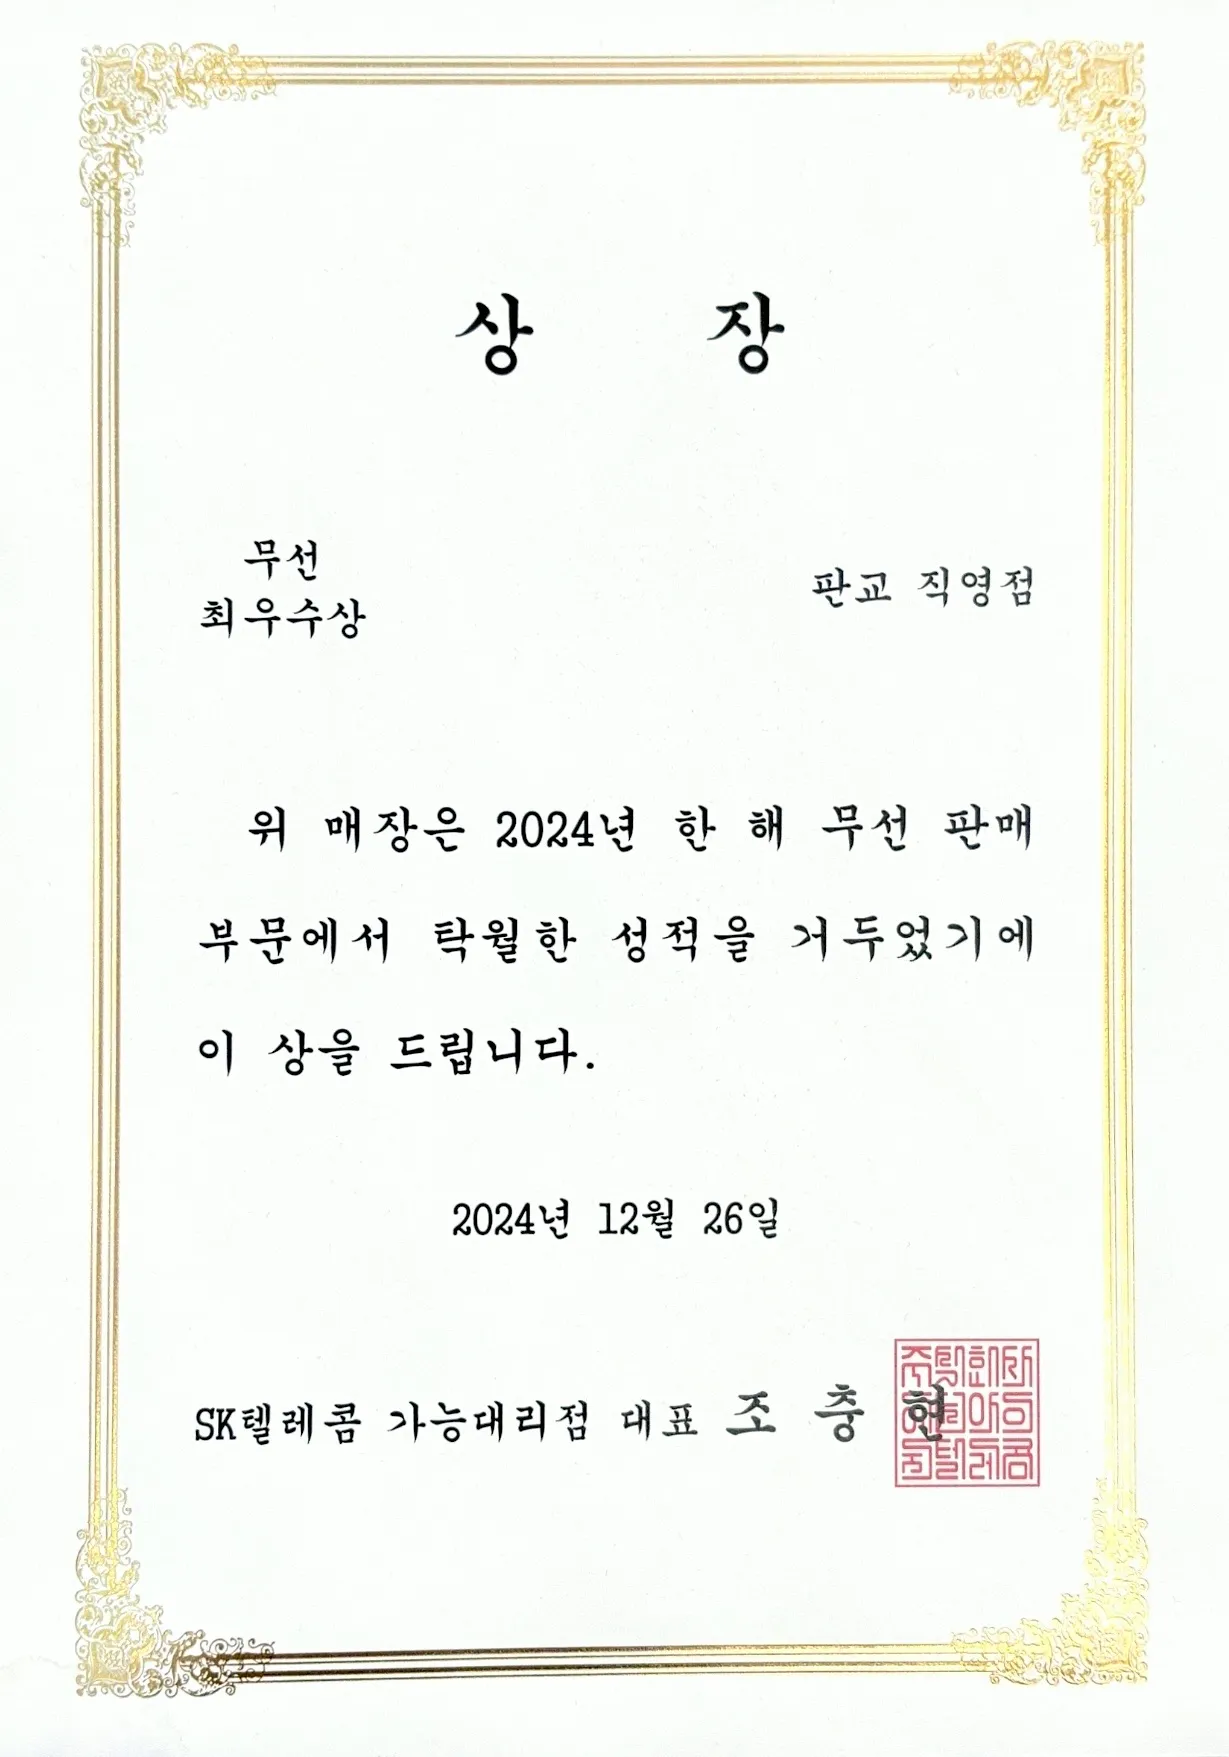 상 장
무선
최우수상
판교 직영점
위 매장은 2024년 한 해 무선 판매
부문에서 탁월한 성적을 거두었기에
이 상을 드립니다.
2024년 12월 26일
SK텔레콤 가능대리점 대표 조 충 현